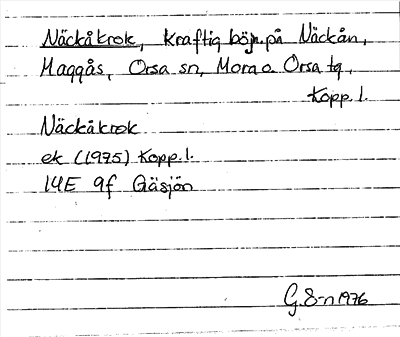 Näckåkrok, kraftig böjn. på Näckån,
Maggås, Orsa sn, Mora o. Orsa tg,
Kopp. l.
Näckåkrok
ek (1975) Kopp. l.
14E 9f Gäsjön
G. S-n 1976